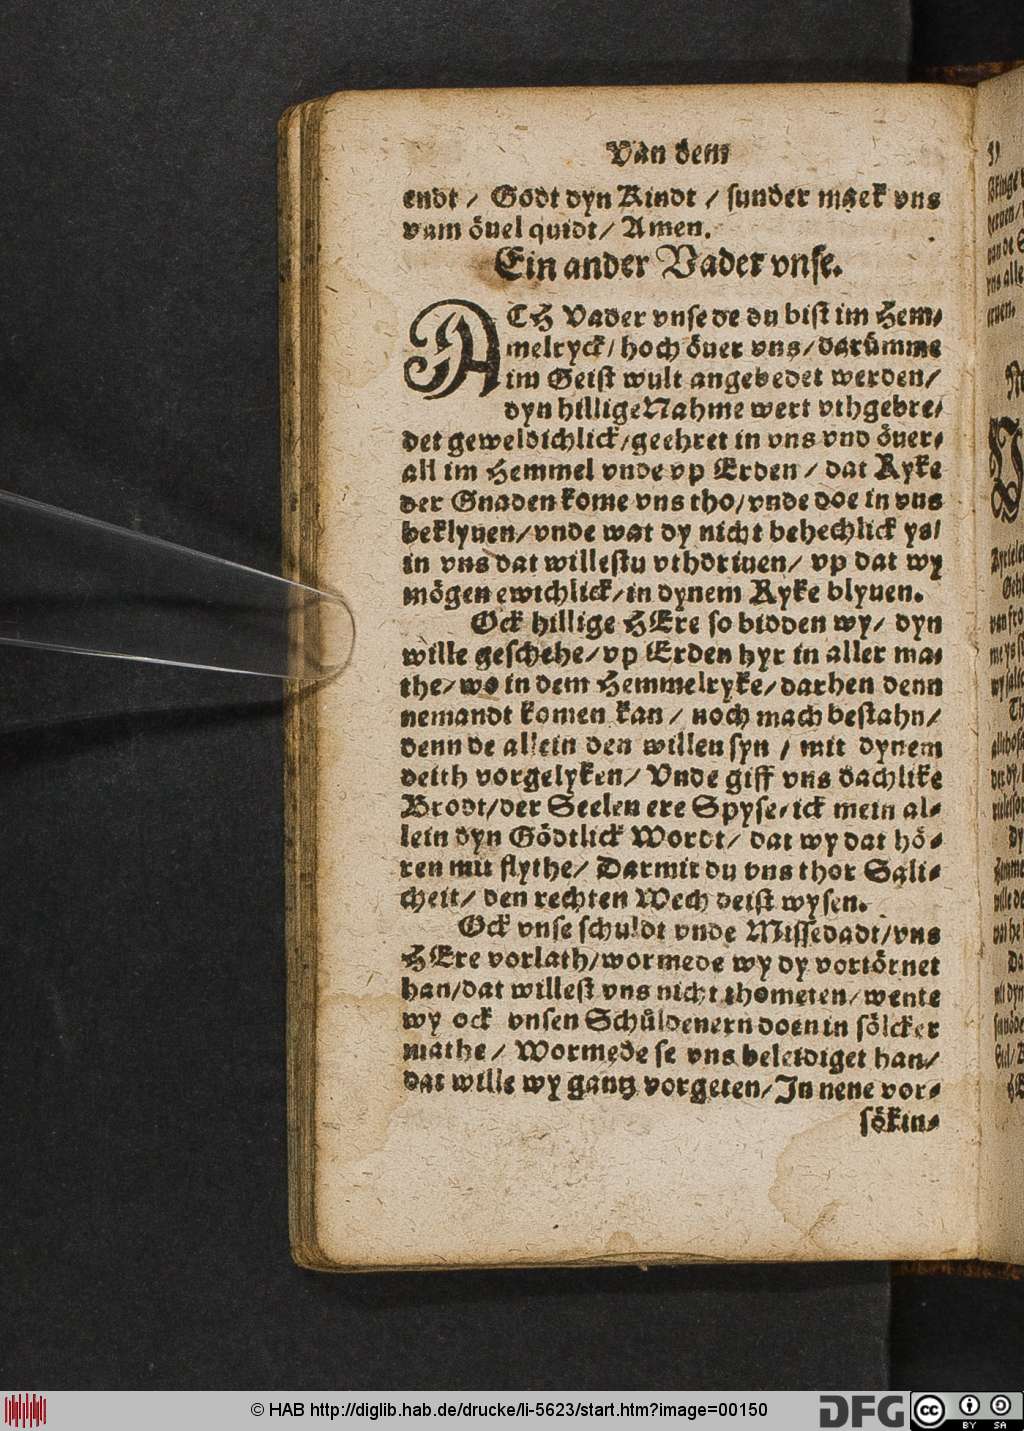 Van dem
endt / Godt dyn Kindt / sunder maek vns
vam övel quidt / Amen.
Ein ander Vader vnse.
ACH Vader vnse de du bist im Hem-
melryck / hoch över vns / darümme
im Geist wult angebedet werden /
dyn hillige Nahme wert vthgebre-
det geweldichlick / geehret in vns vnd över-
all im Hemmel vnde vp Erden / dat Ryke
der Gnaden kome vns tho / vnde doe in vns
beklyuen / vnde wat dy nicht behechlick ys /
in vns dat willestu vthdriuen / vp dat wy
mögen ewichlick / in dynem Ryke blyuen.
Ock hillige HEre so bidden wy / dyn
wille geschehe / vp Erden hyr in aller ma-
the / wo in dem Hemmelryke / darhen denn
nemandt komen kan / noch mach bestahn /
denn de allein den willen syn / mit dynem
deith vorgelyken / Vnde giff vns dachlike
Brodt / der Seelen ere Spyse / ick mein al-
lein dyn Gödtlick Wordt / dat wy dat hö-
ren mit flythe / Darmit du vns thor Sali-
cheit / den rechten Wech deist wysen.
Ock vnse schuldt vnde Missedadt / vns
HEre vorlath / wormede wy dy vortörnet
han / dat willest vns nicht thometen / wente
wy ock vnsen Schüldenern doen in sölcker
mathe / Wormede se vns beleidiget han /
dat wille wy gantz vorgeten / In nene vor-
sökin-
© HAB http://diglib.hab.de/drucke/li-5623/start.htm?image=00150
DFG
cc
BY SA